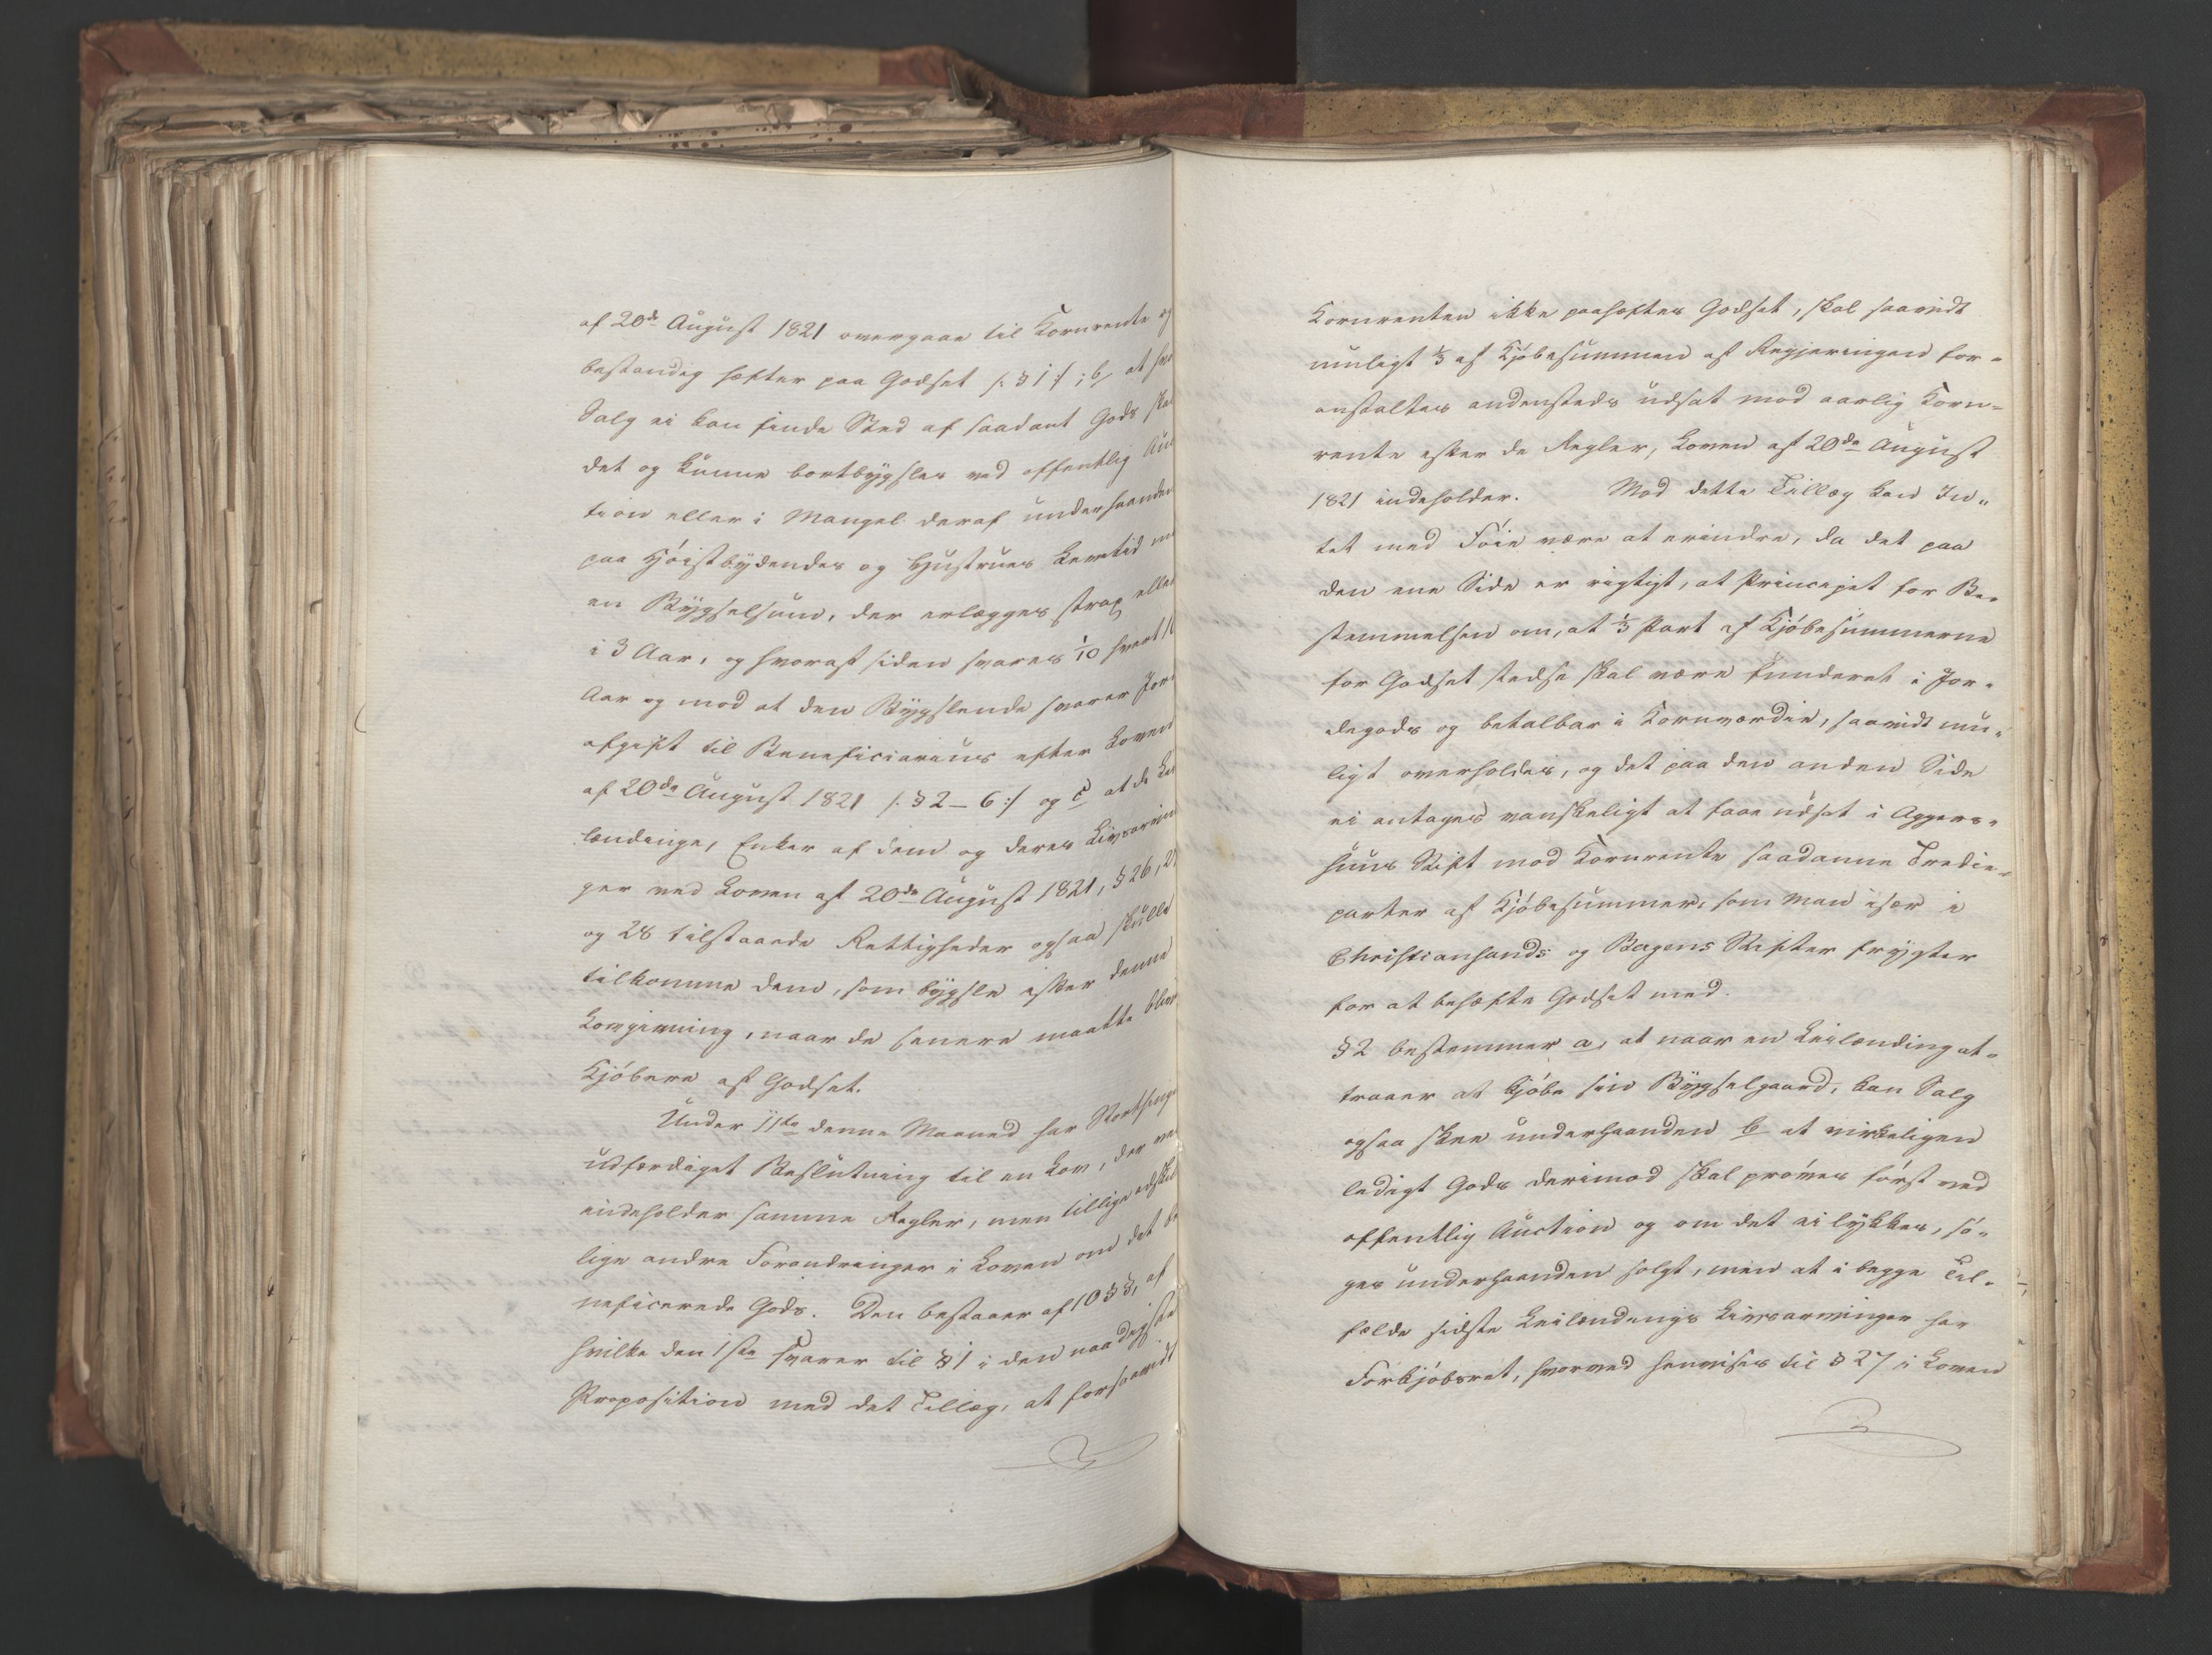 af 20de August 1821 overgaae til Kornrente og
bestandig hefter paa Godset /: § 1 :/ ; b, at hvor
Salg ei kan finde Sted af saadant Gods skal
det og kunne bortbygsles ved offentlig Auc
tion eller i Mangel deraf underhaanden
paa Høistbydendes og Hustrues Levetid mod
en Bygselsum, der erlægges strax eller
i 3 Aar, og hvoraf siden svares 1/10 hvert 10
Aar og mod at den Bygslende svarer Jord
afgift til Beneficiarius efter Loven
af 20de August 1821 /: § 2 – 6 :/ og c at de Lei
lændinge, Enker af dem og deres Livsarvin
ger ved Loven af 20de August 1821, § 26, 27
og 28 tilstaaede Rettigheder ogsaa skulle
tilkomme dem, som bygsle efter denne
Lovgivning, naar de senere maatte blive
Kjøbere af Godset.
Under 11te denne Maaned har Storthinget
udfærdiget Beslutning til en Lov, der vel
indeholder samme Regler, men tillige adskil
lige andre Forandringer i Loven om det be
neficerede Gods. Den bestaaer af 10 §§, af
hvilke den 1ste svarer til § 1 i den naadigste
Proposition med det Tillæg, at forsaavidt
Kornrenten ikke paaheftes Godset, skal saavidt
muligt 1/3 af Kjøbesummen af Regjeringen for-
anstaltes andensteds udsat mod aarlig Korn-
rente efter de Regler, Loven af 20de August
1821 indeholder. Mod dette Tillæg kan In-
tet med Føie være at erindre, da det paa
den ene Side er rigtigt, at Principet for Be-
stemmelsen om, at 1/3 Part af Kjøbesummerne
for Godset stedse skal være funderet i Jor-
degods og betalbar i Kornværdie, saavidt mu-
ligt overholdes, og det paa den anden Side
ei antages vanskeligt at faae udsat i Aggers-
huus Stift mod Kornrente saadanne Tredie-
parter af Kjøbesummer, som man især i
Christiansands og Bergens Stifter frygter
for at behefte Godset med.
§ 2 bestemmer a, at naar en Leilænding at-
traaer at kjøbe sin Bygselgaard, kan Salg
ogsaa skee underhaanden b at virkeligen
ledigt Gods derimod skal prøves først ved
offentlig Auction og om det ei lykkes, sø-
ges underhaanden solgt, men at i begge Til-
fælde sidste Leilændings Livsarvinger har
Forkjøbsret, hvorved henvises til § 27 i Loven